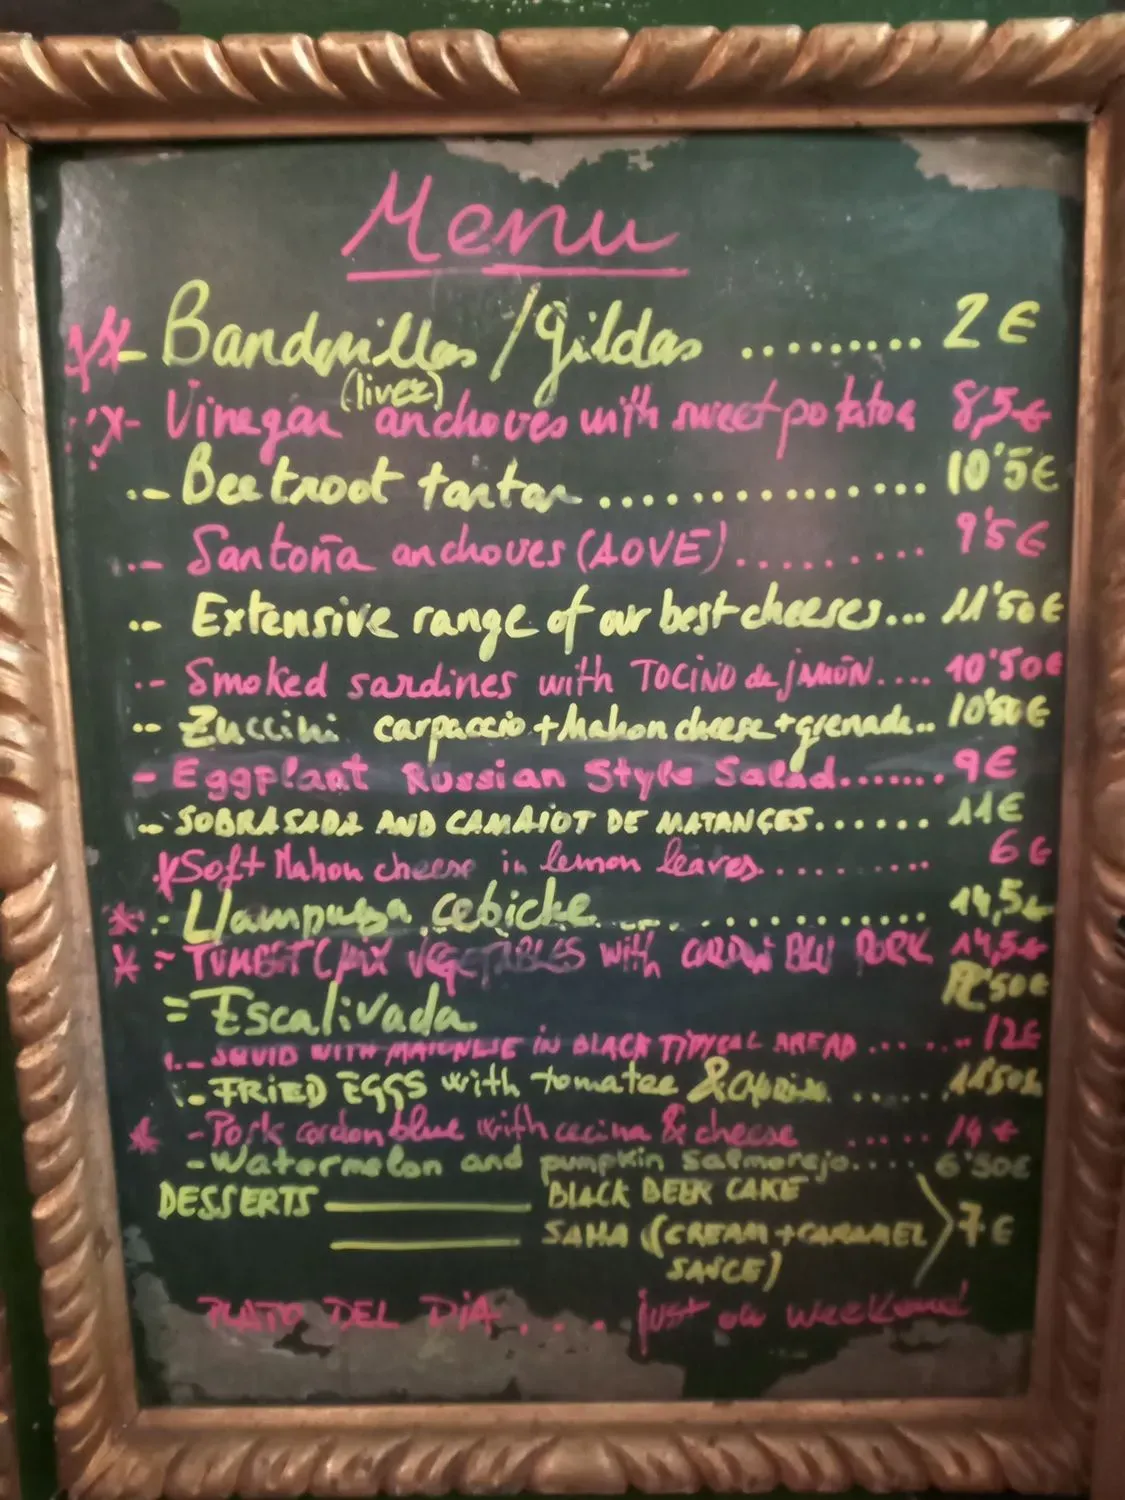 Menu
- Banderillas / gildas ......... 2€
(liver)
- Vinegar anchoves with sweet potatoe 8,5€
- Beetroot tartar ............... 10'5€
- Santoña anchoves (AOVE) ........ 9'5€
- Extensive range of our best cheeses... 11'50€
- Smoked sardines with TOCINO de JAMÓN.... 10'50€
- Zuccini carpaccio + Mahon cheese + grenade.. 10'50€
- Eggplant Russian Style Salad....... 9€
- SOBRASADA AND CAMAIOT DE MATANÇES...... 11€
Soft Mahon cheese in lemon leaves......... 6€
* - Llampuga cebiche ............ 14,5€
* - TUMBET (MIX VEGETABLES with CORDON BLU PORK 14,5€
= Escalivada 12'50€
- SQUID WITH MAIONESE IN BLACK TIPYCAL BREAD ..... 12€
- FRIED EGGS with tomatee & CHORIZO ..... 11'50€
* - Pork cordon blue with cecina & cheese ..... 14€
- Watermelon and pumpkin Salmorejo.... 6'50€
DESSERTS BLACK BEER CAKE
SAHA (CREAM + CARAMEL 7€
SAUCE)
PLATO DEL DIA .... just on weekend